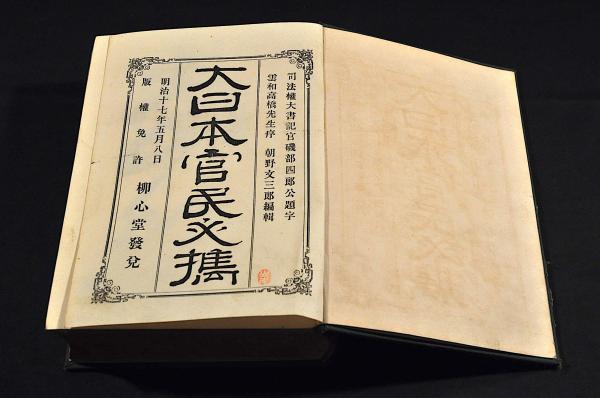 司法權大書記官磯部四郎公題字
雲和高橋先生序 朝野文三郎編輯
大日本官民必携
明治十七年五月八日
版權免許 柳心堂發兌